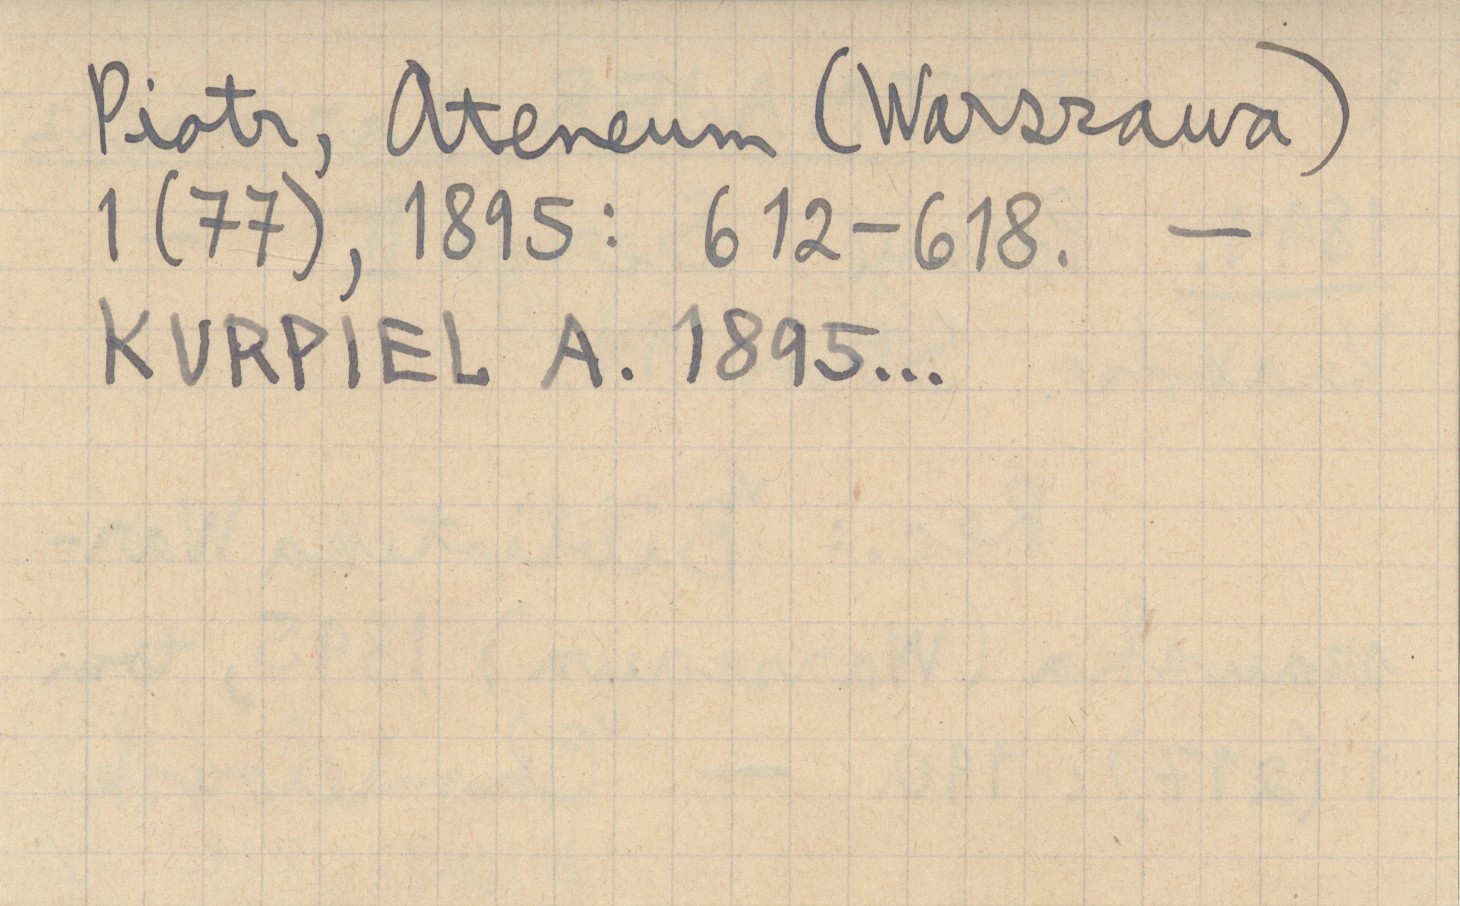 Piotr, Ateneum (Warszawa)
1(77), 1895: 612-618. —
KURPIEL A. 1895...